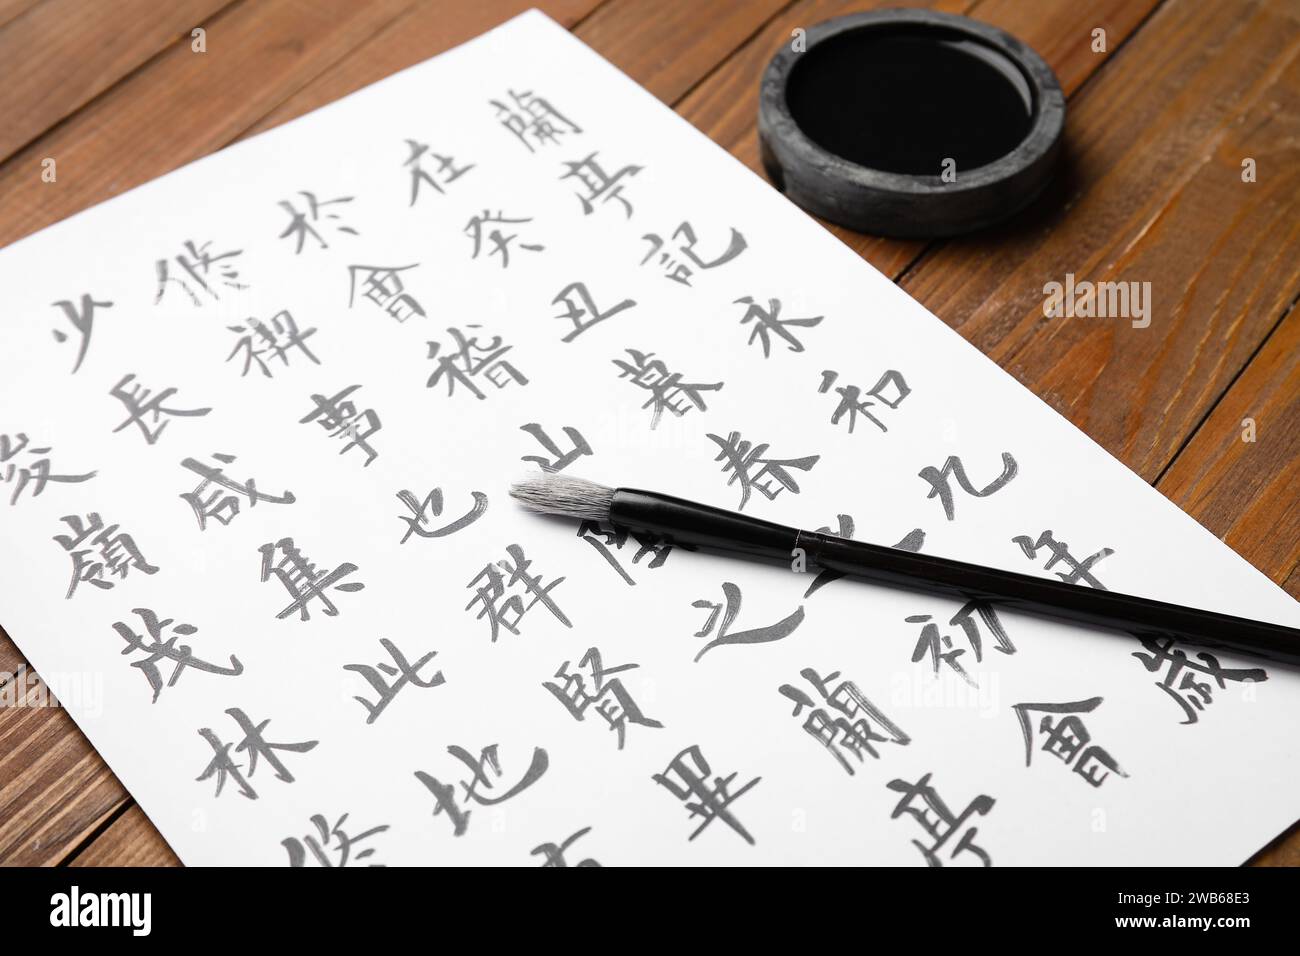 蘭亭記永和九年歲
在癸丑暮春之初會
於會稽山之蘭亭
修禊事也群賢畢
少長咸集此地
嶺茂林修
alamy
Image ID: 2WB68E3
www.alamy.com